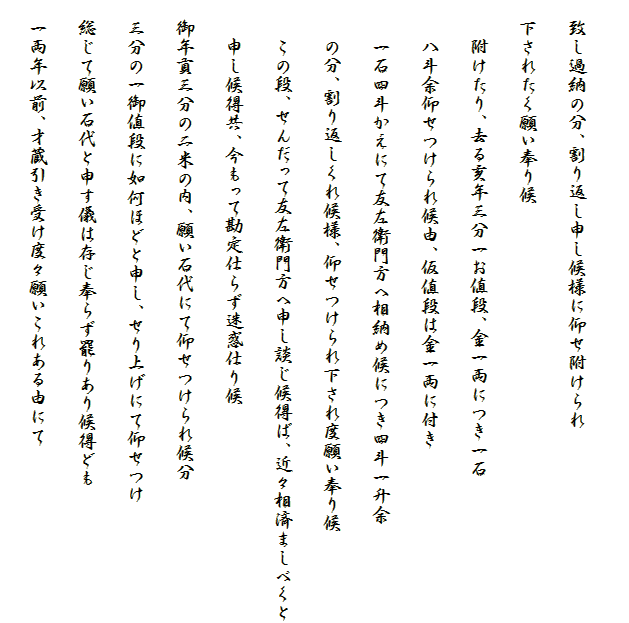 致し過納の分、割り返し申し候様に仰せ附けられ
下されたく願い奉り候
附けたり、去る亥年三分一お値段、金一両につき一石
八斗余仰せつけられ候由、仮値段は金一両に付き
一石四斗かえにて友左衛門方へ相納め候につき四斗一升余
の分、割り返しくれ候様、仰せつけられ下され度願い奉り候
この段、せんだって友左衛門方へ申し談じ候得ば、近々相済ましべくと
申し候得共、今もって勘定仕らず迷惑仕り候
御年貢三分の二米の内、願い石代にて仰せつけられ候分
三分の一御値段に如何ほどと申し、せり上げにて仰せつけ
総じて願い石代と申す儀は存じ奉らず罷りあり候得ども
一両年以前、才蔵引き受け度々願いこれある由にて